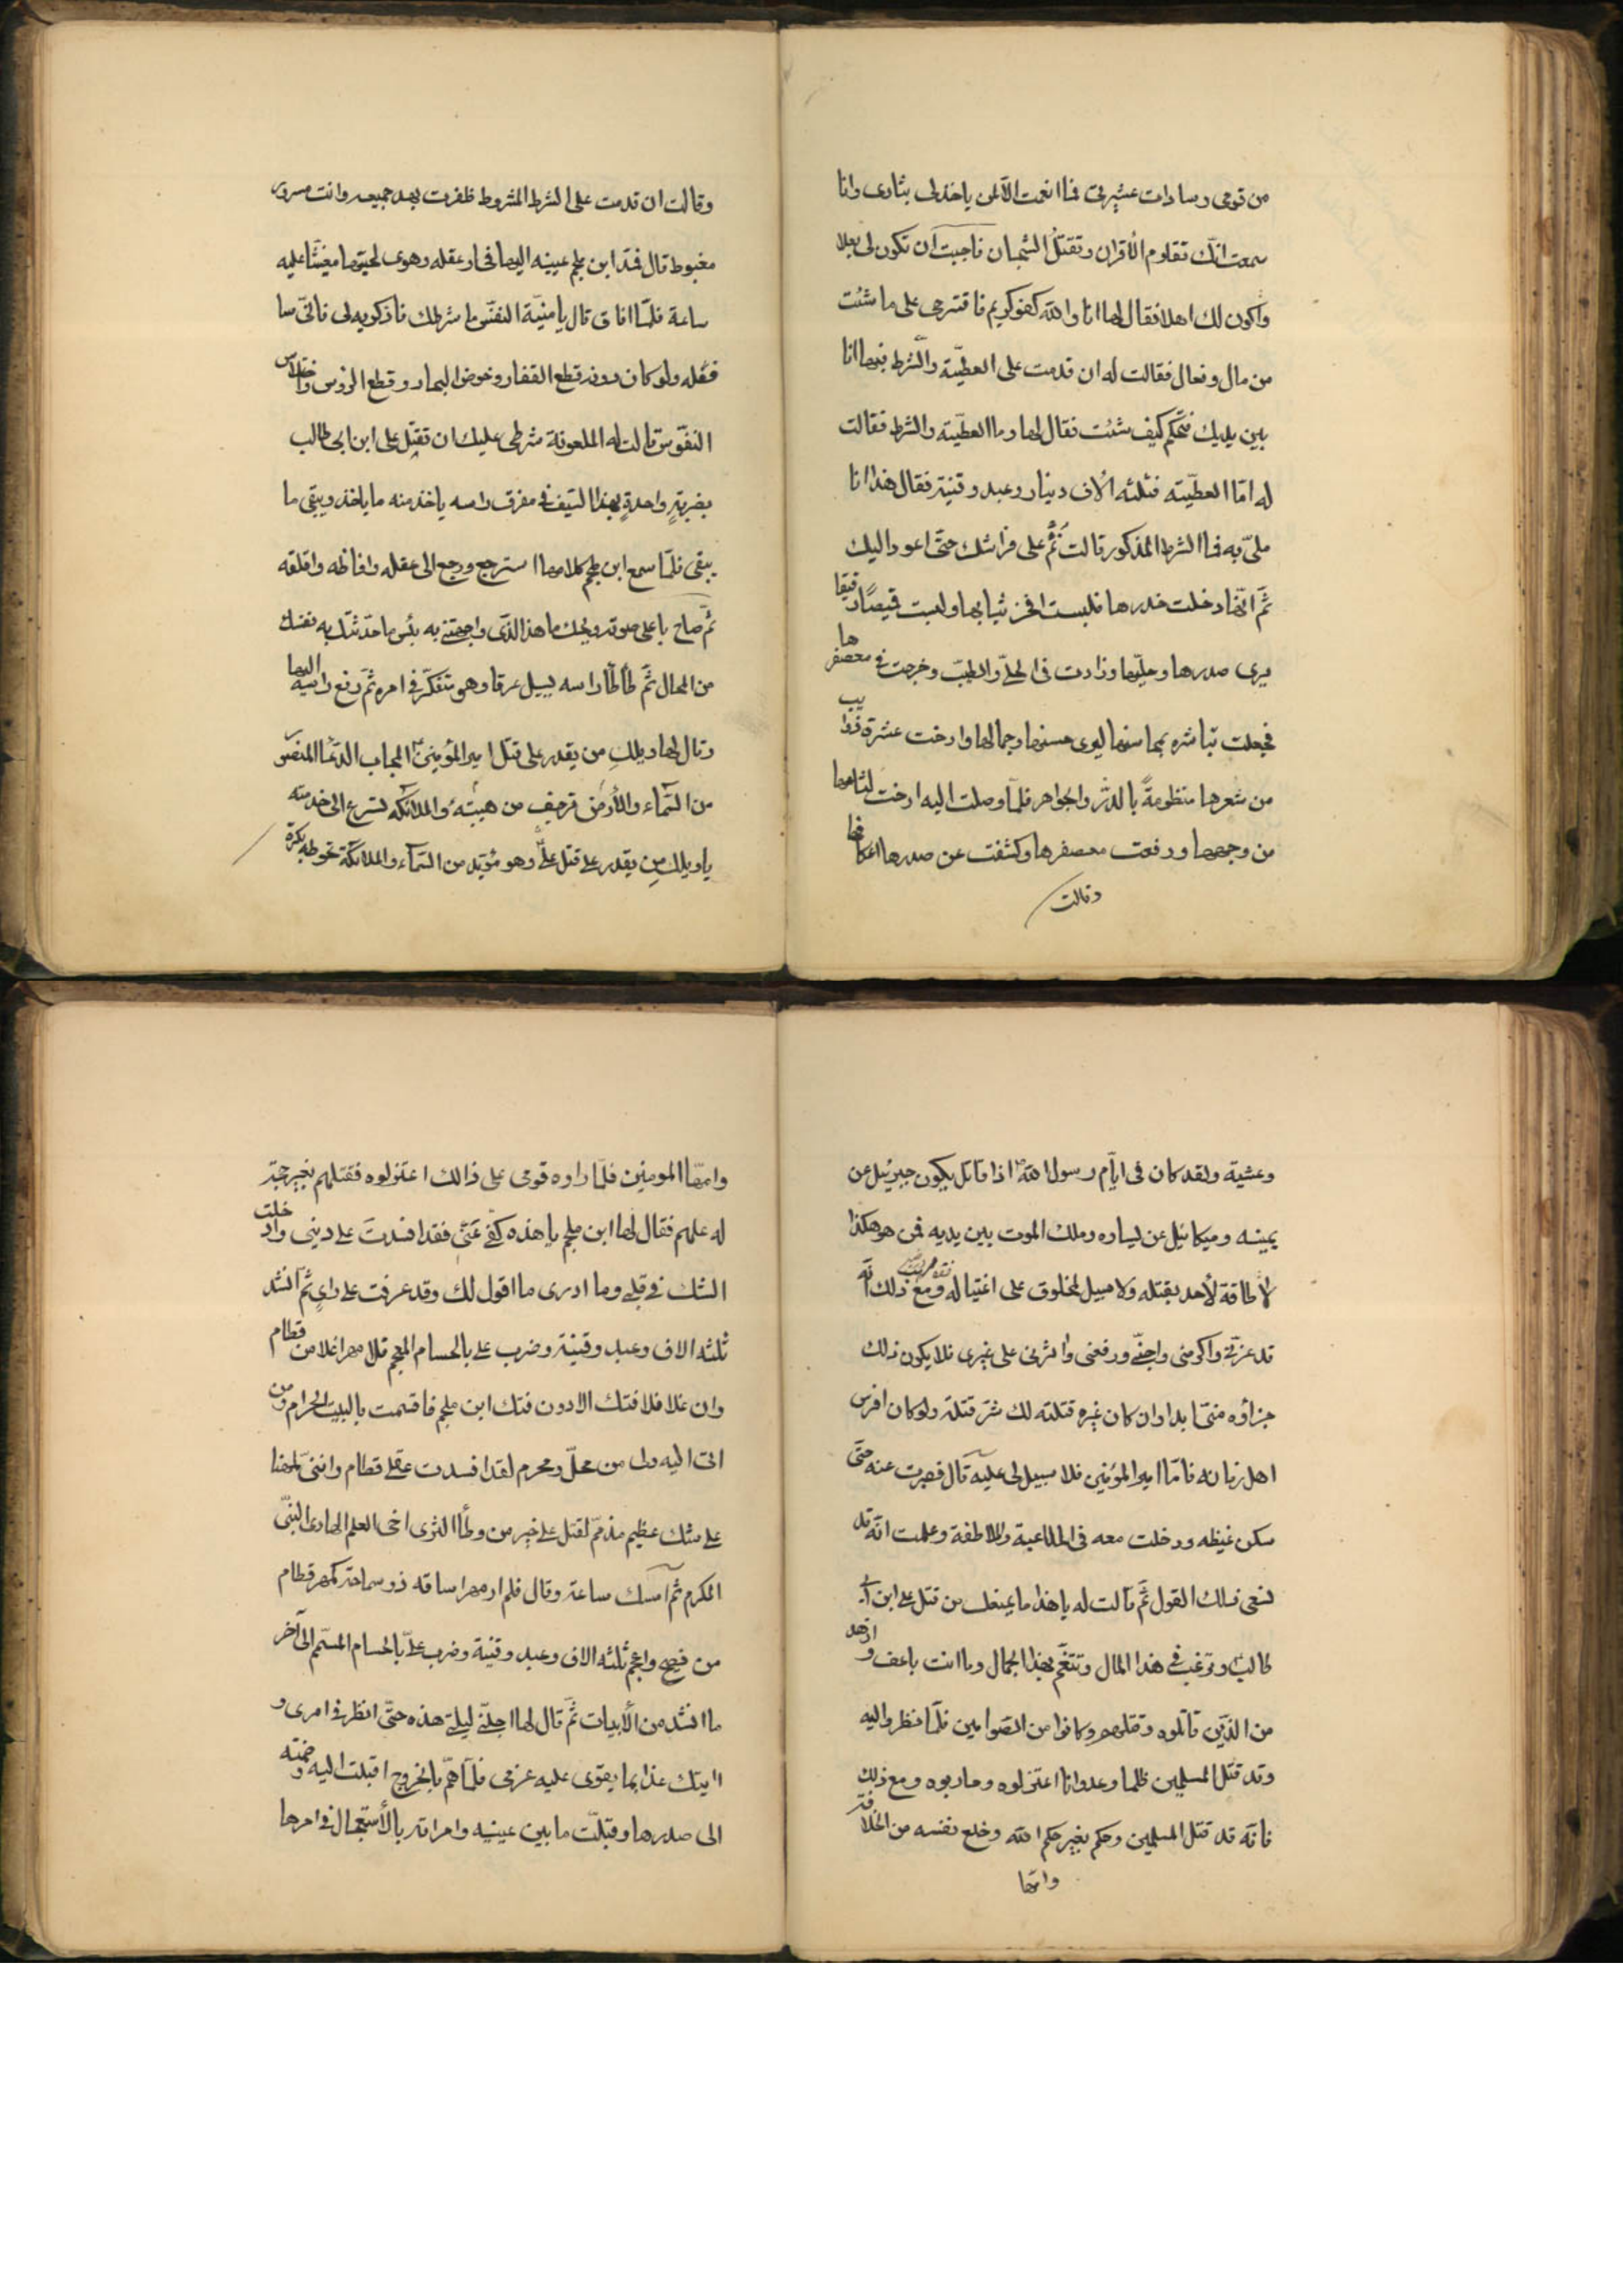 من قومى وسادات عشيرتى فما انعمت الا لمن ياخذلى بثارى وانا
سمعت انك تقاوم الأقران وتقتل الشجعان فاحببت ان تكون لى بعلا
واكون لك اهلا فقال لها انا والله كفو كريم فاقترحى على ما شئت
من مال وفعال فقالت له ان قدمت على العطيّة والشرط فيها انا
بين يديك فتحكم كيف شئت فقال لها وما العطيّته والشرط فقالت
له امّا العطيّته فثلثه ألاف دينار وعبد وقنية فقال هذا انا
ملىّ به فما الشرط المذكور قالت نُم على فراشك حتى اعود اليك
ثم انّها دخلت خدرها فلبست افخر ثيابها ولبست قميصًا رقيقا
يرى صدرها وحليّها وزادت فى الحلىّ والطيب وخرجت فى معصفرها
فجعلت تباشره بمحاسنها ليرى حسنها وجمالها وارخت عشرة ذوايب
من شعرها منظومةً بالدرّ والجواهر فلمّا وصلت اليه ارخت لثامها
من وجهها ورفعت معصفرها وكشفت عن صدرها اعكانها
وقالت
وقالت ان قدمت على الشرط المشروط ظفرت بهد جميعه وانت مسرور
مغبوط قال فمدّ ابن ملجم عينيه اليها فحار عقله وهوى لحيتها مغشيّا عليه
ساعة فلمّا افاق قال يا منيّة النفس ما شرطك فاذكريه لى فانّى سا
فعله ولو كان دونه قطع القفار وخوض البحار وقطع الرؤس واختلاس
النفوس قالت له الملعونة شرطى عليك ان تقتل على ابن ابى طالب
بضربةٍ واحدةٍ بهذا السّيف فى مفرق راسه ياخذ منه ما ياخذ ويبقى ما
يبقى فلمّا سمع ابن ملجم كلامها استرجع ورجع الى عقله واغاظه واقلقه
ثم صاح باعلى صوته ويحك ما هذا الذى واجهتنى به بئس ما حدّثتك به نفسك
من المحال ثمّ طأطأ راسه يسيل عرقا وهو متفكّر فى امره ثمّ رفع راسه اليها
وقال لها ويلكِ من يقدر على قتل امير المؤمنين المجاب الدعا المنصور
من السّماء والأرض ترجف من هيبته والملائكه تسرع الى خدمته
يا ويلكِ من يقدر على قتل علىّ وهو مؤيّد من السّماء والملائكة تحوطه بكرة
وعشية ولقد كان فى ايّام رسول الله اذا قاتل يكون جبرئيل عن
يمينه وميكائيل عن يساره وملك الموت بين يديه فمن هو هكذا
لا طاقة لأحد بقتله ولا سبيل لمخلوق على اغتياله ومع ذلك انّه
قد عزنى واكرمنى واحبّنى ورفعنى واثرنى على غيرى فلا يكون ذلك
جزاؤه منّى ابدا وان كان غيره قتلته لك شرّ قتلة ولو كان افرس
اهل زمانه فامّا امير المؤمنين فلا سبيل لى عليه قال فصبرت عنه حتّى
سكن غيظه ودخلت معه فى الملاعبة والملاطفة وعلمت انّه قد
نسى ذلك القول ثمّ قالت له يا هذا ما يمنعك من قتل على ابن ابى
طالب وترغب فى هذا المال وتتنعّم بهذا الجمال وما انت باعف وازهد
من الذين قاتلوه وقتلهم وكانوا من الصوامين فلمّا نظروا اليه
وقد قتل المسلمين ظلما وعدوانا اعتزلوه وحاربوه ومع ذلك
فانّه قد قتل المسلمين وحكم بغير حكم الله وخلع نفسه من الخلافة
وامرة
وامرة المومنين فلمّا راوه قومى على ذالك اعتزلوه فقتلهم بغير حجّة
له عليهم فقال لها ابن ملجم يا هذه كفى عنّى فقد افسدتَ على دينى وادخلت
الشك فى قلبى وما ادرى ما اقول لك وقد عرفت على راىٍ ثم انشد
ثلثه الاف وعبد وقنية وضرب على بالحسام المعجم فلا مهر اغلا من قطام
وان غلا فلا فتك الا دون فتك ابن ملجم فاقسمت بالبيت الحرام ومن
اتى اليه ولى من محلّ ومحرم لقد افسدت عقلى قطام واننى لمنها
على شك عظيم مذمّم لقتل على خير من وطأ الثرى اخى العلم الهادى النبىّ
المكرم ثم امسك ساعة وقال فلم ار مهرا ساقه ذو سماحة كمهر قطام
من فصيح واعجم ثلثه الاف وعبد وقنية وضرب علىّ بالحسام المسمّم الى آخر
ما انشد من الأبيات ثمّ قال لها اجلنى ليلتى هذه حتّى انظر فى امرى و
اايتك غدا بما يقوى عليه عزمى فلمّا همّ بالخروج اقبلت اليه وضمّته
الى صدرها وقبلّت ما بين عينيه وامراته بالأستعجال فى امرها